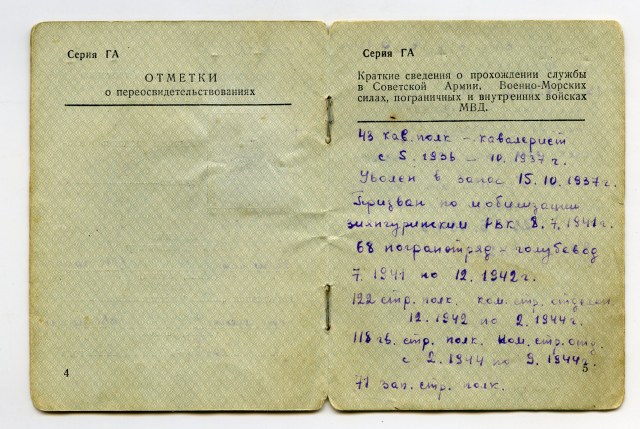 Серия ГА
ОТМЕТКИ
о переосвидетельствованиях
4
Серия ГА
Краткие сведения о прохождении службы
в Советской Армии, Военно-Морских
силах, пограничных и внутренних войсках
МВД.
43 кав. полк - кавалерист
с 5. 1936 - 10. 1937 г.
Уволен в запас 15. 10. 1937 г.
Призван по мобилизации
РВК 8. 7. 1941 г.
68 погранотряд - голубевод
7. 1941 по 12. 1942 г.
122 стр. полк. ком. стр. отделен.
12. 1942 по 2. 1944 г.
118 гв. стр. полк. Ком. стр. отд.
с 2. 1944 по 9. 1944 г.
71 зап. стр. полк.
5